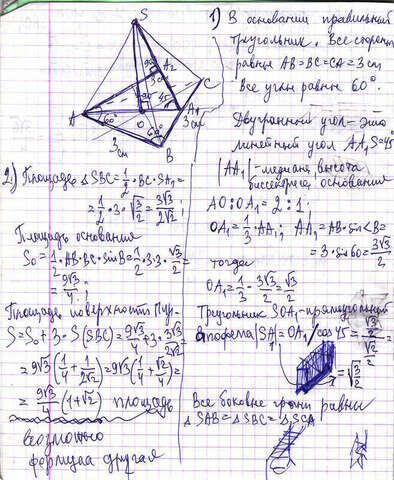 S
1) В основании правильный
треугольник. Все стороны
равны AB=BC=CA=3 см
Все углы равны 60°.
Двугранный угол – это
линейный угол AA₁S=45°
|AA₁| - медиана, высота
биссектриса, основания
AO:OA₁=2:1.
OA₁=1/3·AA₁; AA₁=AB·sin∠B=
=3·sin60=3√3/2,
тогда
OA₁=1/3·3√3/2=√3/2
Треугольник SOA₁-прямоугольный
апофема |SA₁|=OA₁/cos45=(√3/2)/(√2/2)=
=√3/√2
Все боковые грани равны
△SAB=△SBC=△SCA
A₂
90
C
A
60°
90
45
O
A₁
3 см
60
3 см
B
2) Площадь △SBC=1/2·BC·SA₁=
=1/2·3·√(3/2)=3√3/2√2;
Площадь основания
S₀=1/2·AB·BC·sinB=1/2·3·3·√3/2=
=9√3/4;
Площадь поверхности Пир-
S=S₀+3·S(SBC)=9√3/4+3·3√3/2√2=
=9√3(1/4+1/2√2)=9√3(1/4+√2/4)=
=9√3/4(1+√2) площадь
возможно
формула другая